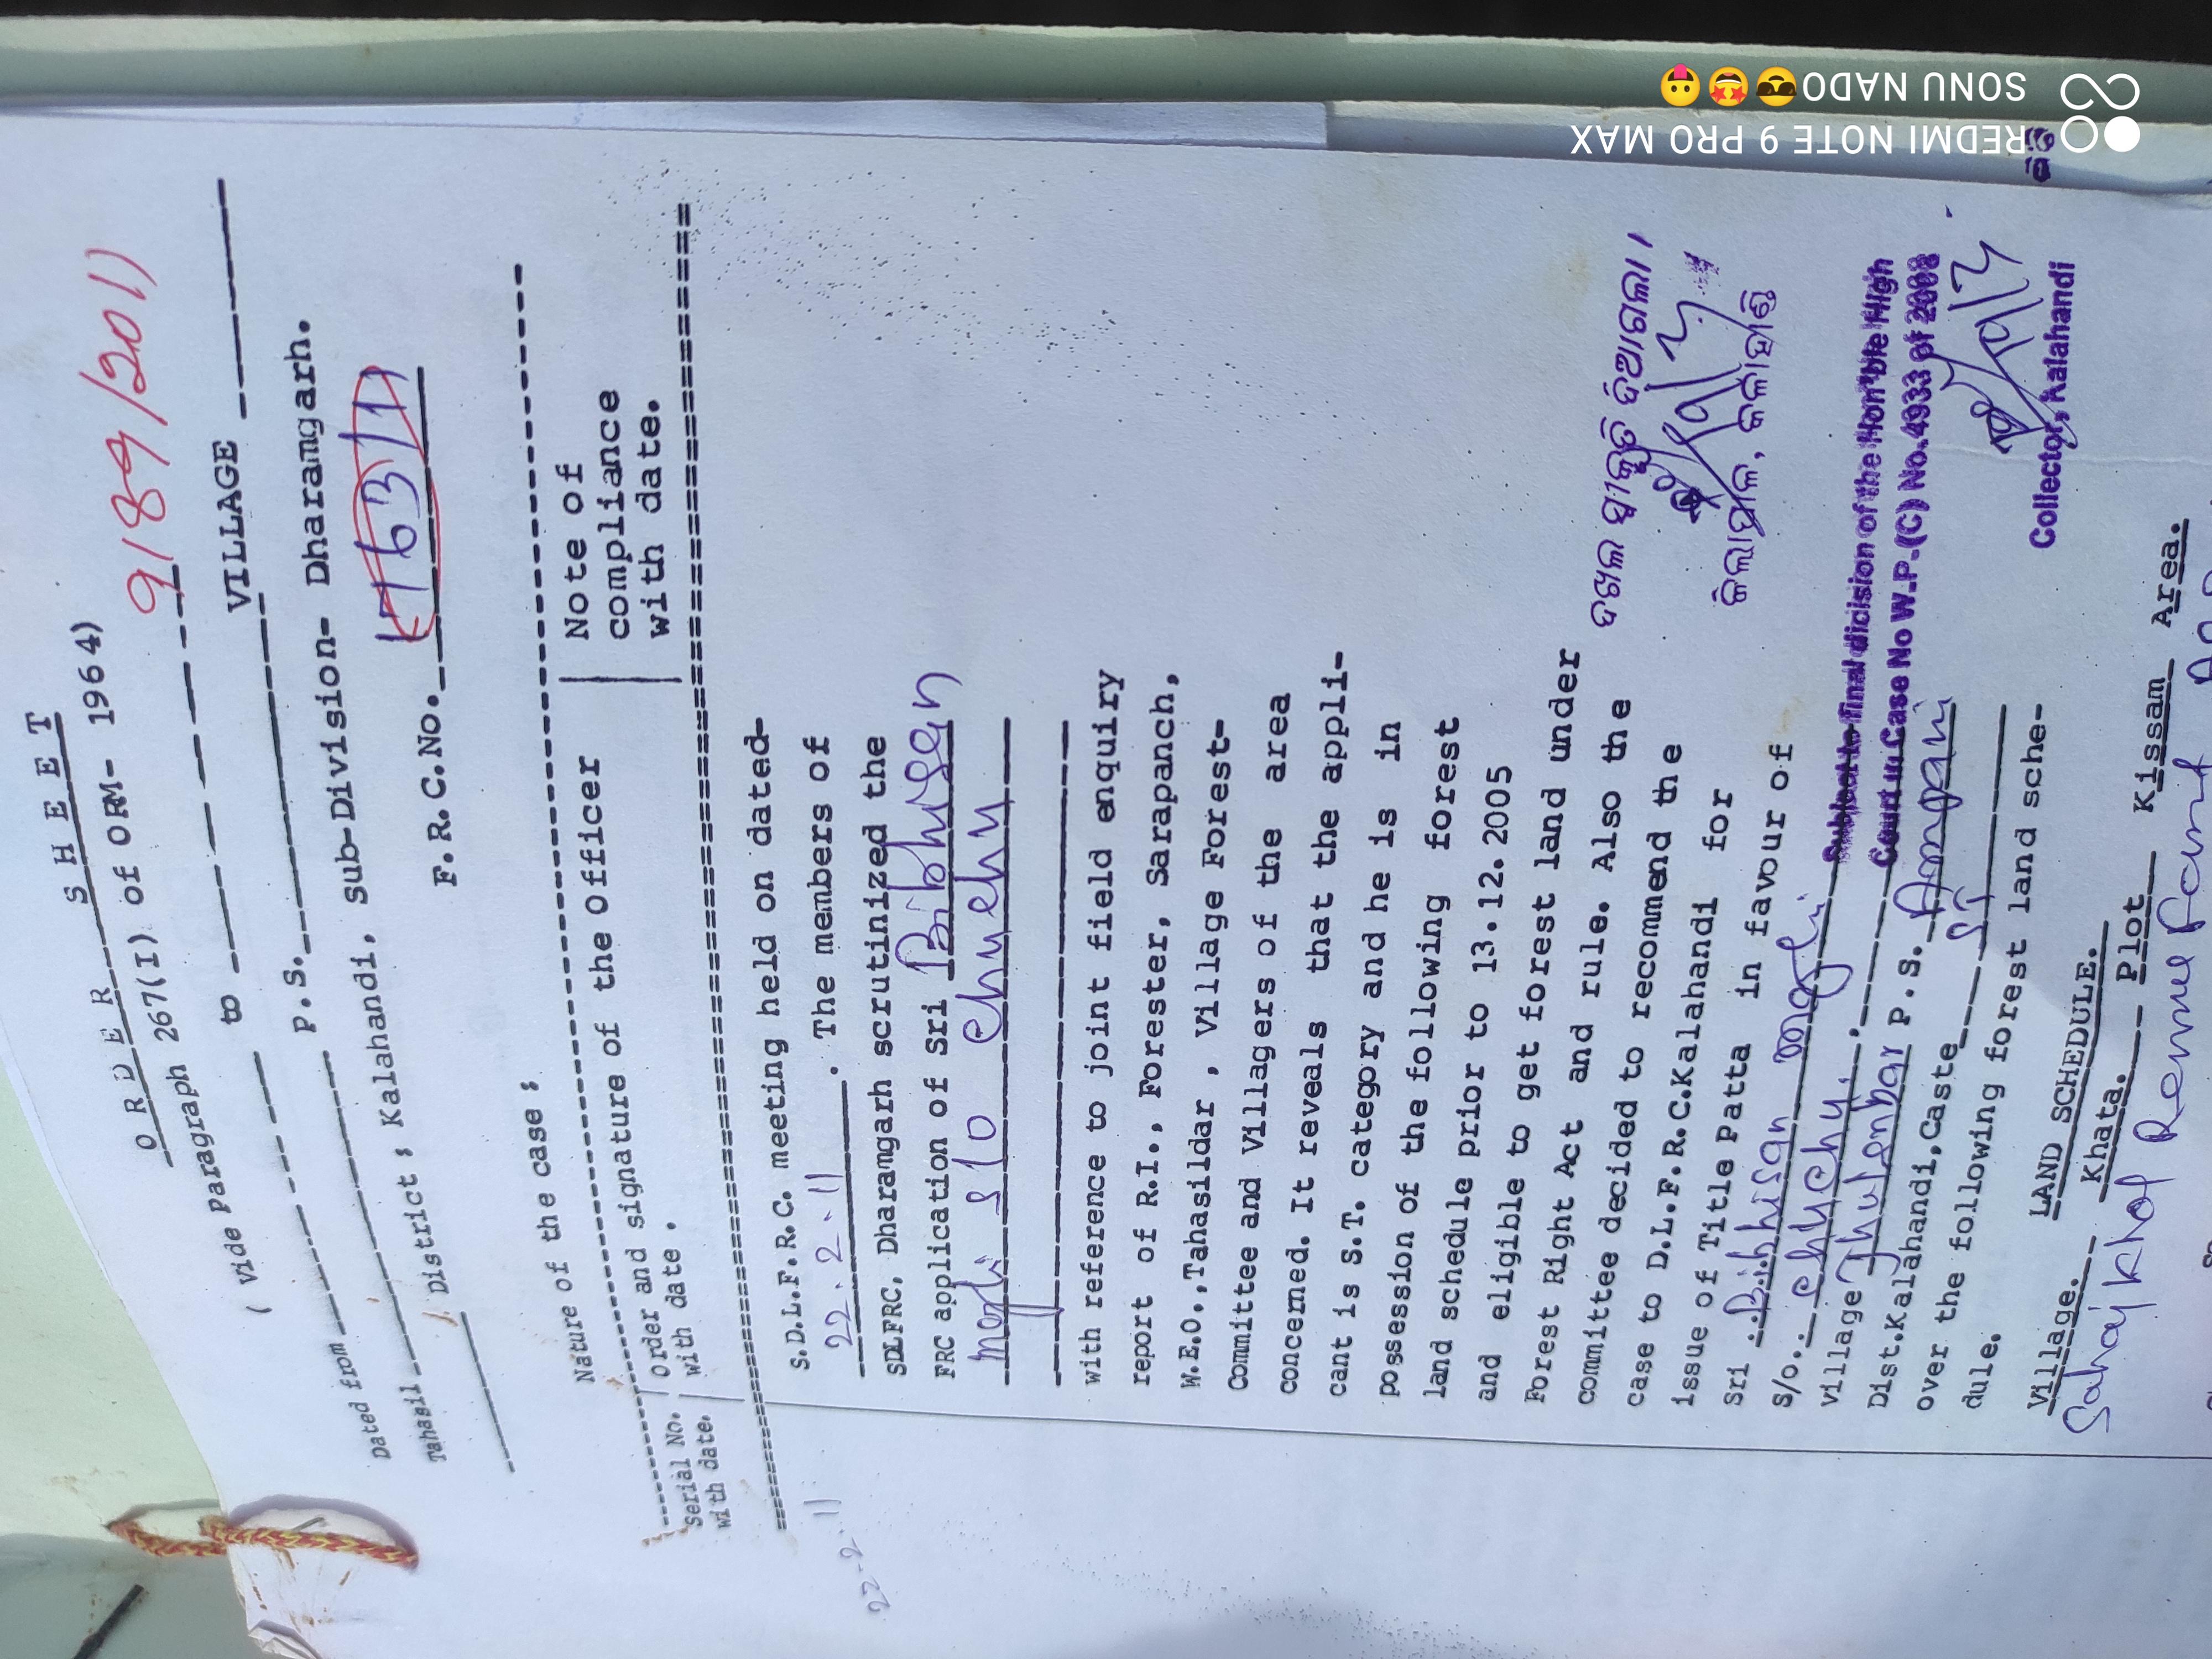 O R D E R   S H E E T
( Vide Paragraph 267(I) of ORM- 1964)
9189/2011
Dated from to VILLAGE
Tahasil P.S.
District : Kalahandi, Sub-Division- Dharamgarh.
F.R.C.No. 1631
Nature of the case :
Serial No. with date. | Order and signature of the officer with date. | Note of compliance with date.
22-2-11
S.D.L.F.R.C. meeting held on dated-
22.2.11 . The members of
SDLFRC, Dharamgarh scrutinized the
FRC application of Sri Bibhisan
majhi S/O chuchu
with reference to joint field enquiry
report of R.I., Forester, Sarapanch,
W.E.O.,Tahasildar , Village Forest-
Committee and Villagers of the area
concerned. It reveals that the appli-
cant is S.T. category and he is in
possession of the following forest
land schedule prior to 13.12.2005
and eligible to get forest land under
Forest Right Act and rule. Also the
committee decided to recommend the
case to D.L.F.R.C.Kalahandi for
issue of Title Patta in favour of
Sri Bibhisan majhi
S/o. chuchu
Village P.S. Ampani
Dist.Kalahandi,Caste ST
over the following forest land sche-
dule.
ଦଖଲ ସ୍ୱୀକୃତି ଦିଆଗଲା ।
ଜିଲ୍ଲାପାଳ, କଳାହାଣ୍ଡି
Subject to final dicision of the Hon'ble High
Court in Case No W.P-(C) No.4933 of 2008
Collector, Kalahandi
LAND SCHEDULE.
Village. Khata. Plot Kissam Area.
Sahajkhol
REDMI NOTE 9 PRO MAX
SONU NADO